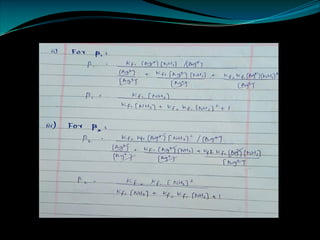 ii) For β₁ :
β₁ = Kf₁ [Ag⁺] [NH₃] / [Ag⁺]
[Ag⁺] + Kf₁ [Ag⁺] [NH₃] + Kf₁ Kf₂ [Ag⁺] [NH₃]²
[Ag⁺] [Ag⁺] [Ag⁺]
β₁ = Kf₁ [NH₃]
Kf₁ [NH₃] + Kf₁ Kf₂ [NH₃]² + 1
iii) For β₂ :
β₂ = Kf₁ Kf₂ [Ag⁺] [NH₃]² / [Ag⁺]
[Ag⁺] + Kf₁ [Ag⁺] [NH₃] + Kf₂ Kf₁ [Ag⁺] [NH₃]
[Ag⁺] [Ag⁺] [Ag⁺]
β₂ = Kf₁ Kf₂ [NH₃]²
Kf₁ [NH₃] + Kf₁ Kf₂ [NH₃] + 1